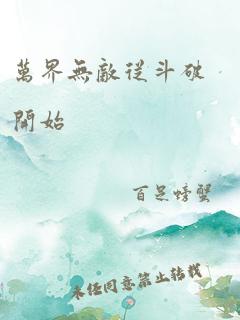 萬界無敵從斗破
開始
百足螃蟹
未經同意禁止轉載